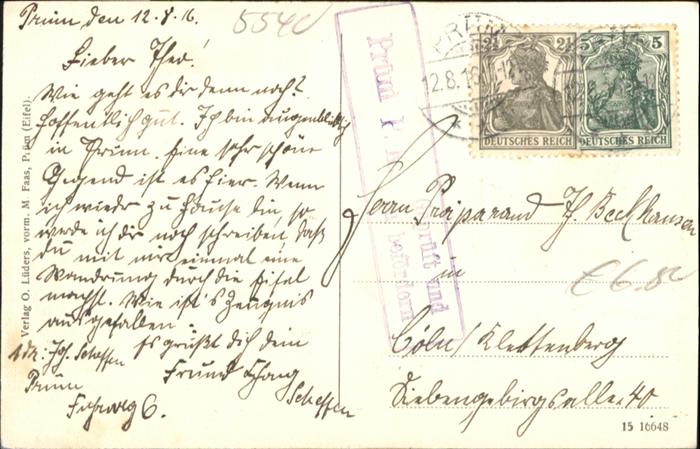 Prüm den 12.8.16.
Lieber Theo!
Wie geht es dir denn noch?
Hoffentlich gut. Ich bin augenblicklich
in Prüm. Eine sehr schöne
Gegend ist es hier. Wenn
ich wieder zu Hause bin, so
werde ich dir noch schreiben, daß
du mit mir einmal eine
Wanderung durch die Eifel
machst. Wie ist's Zeugnis
ausgefallen.
Es grüßt dich dein
Freund
Scheffen
Adr.: Joh. Scheffen
Prüm
6.
Verlag O. Lüders, vorm. M. Faas, Prüm (Eifel).
554c
Prüm
geprüft und
befördern
PRÜM
12.8.16
2½ 2½
DEUTSCHES REICH
5 5
DEUTSCHES REICH
Herrn Präparand Th. Beckhausen
in
Cöln/Klettenberg
Siebengebirgsallee 40
€ 6.80
15 16648